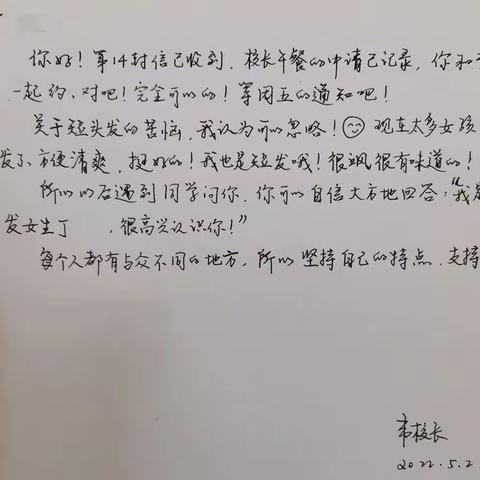 你好！第14封信已收到，校长午餐的申请已记录，你和
一起约，对吧！完全可以的！等周五的通知吧！
关于短头发的苦恼，我认为可以忽略！现在太多女孩
发了，方便清爽，挺好的！我也是短发哦！很飒很有味道的！
所以以后遇到同学问你，你可以自信大方地回答：“我是
发女生丁    ，很高兴认识你！”
每个人都有与众不同的地方，所以坚持自己的特点，支持
韦校长
2022.5.2